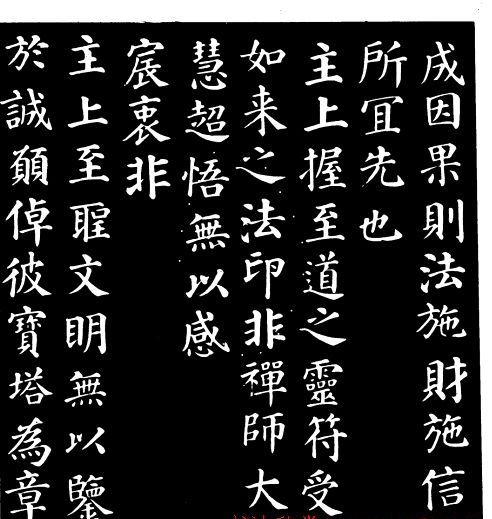 成因果則法施財施信
所冝先也
主上握至道之靈符受
如来之法印非禪師大
慧超悟無以感
宸衷非
主上至聖文明無以鑒
於誠願倬彼寶塔為章